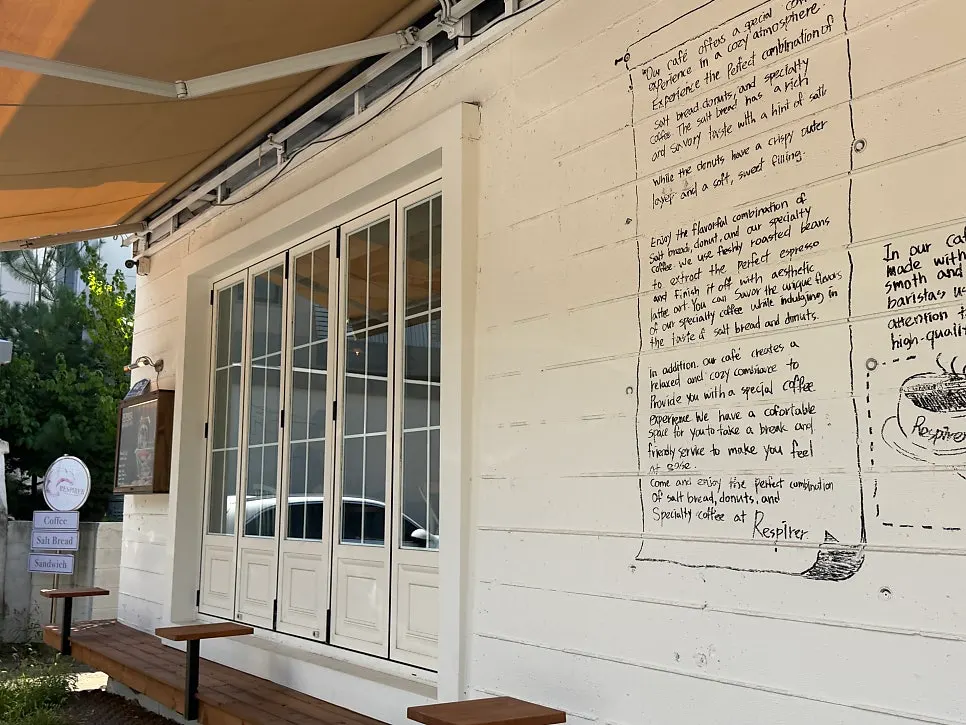 "Our café offers a special
experience in a cozy atmosphere.
Experience the Perfect combination of
salt bread, donuts, and specialty
coffee. The salt bread has a rich
and savory taste with a hint of salt
while the donuts have a crispy outer
layer and a soft, sweet filling.
Enjoy the flavorful combination of
Salt bread, donut, and our specialty
coffee. We use freshly roasted beans
to extract the perfect espresso
and finish it off with aesthetic
latte art. You can Savor the unique flavors
of our specialty coffee while indulging in
the taste of salt bread and donuts.
In addition. our café creates a
relaxed and cozy ambiance to
Provide you with a special coffee
experience. We have a cofortable
space for you to take a break and
friendly service to make you feel
at ease.
Come and enjoy the perfect combination
of salt bread, donuts, and
Specialty coffee at Respirer.
In our
made with
smoth and
baristas
attention
high-quali
Respirer
RESPIRER
Coffee
Salt Bread
Sandwich